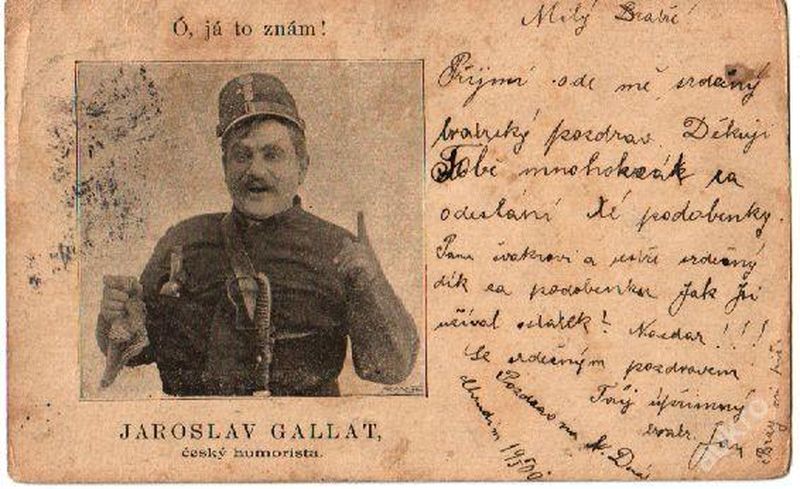 Ó, já to znám!
JAROSLAV GALLAT,
český humorista.
Milý Bratře!
Přijmi ode mě srdečný
bratrský pozdrav. Děkuji
Tobě mnohokrák za
odeslání té podobenky.
Panu švakrovi a srdečný
dík za podobenku Jak jsi
užíval ostatek! Nazdar!!!
Se srdečným pozdravem
Tvůj upřimný
bratr Jan
Pozdrav na
1900